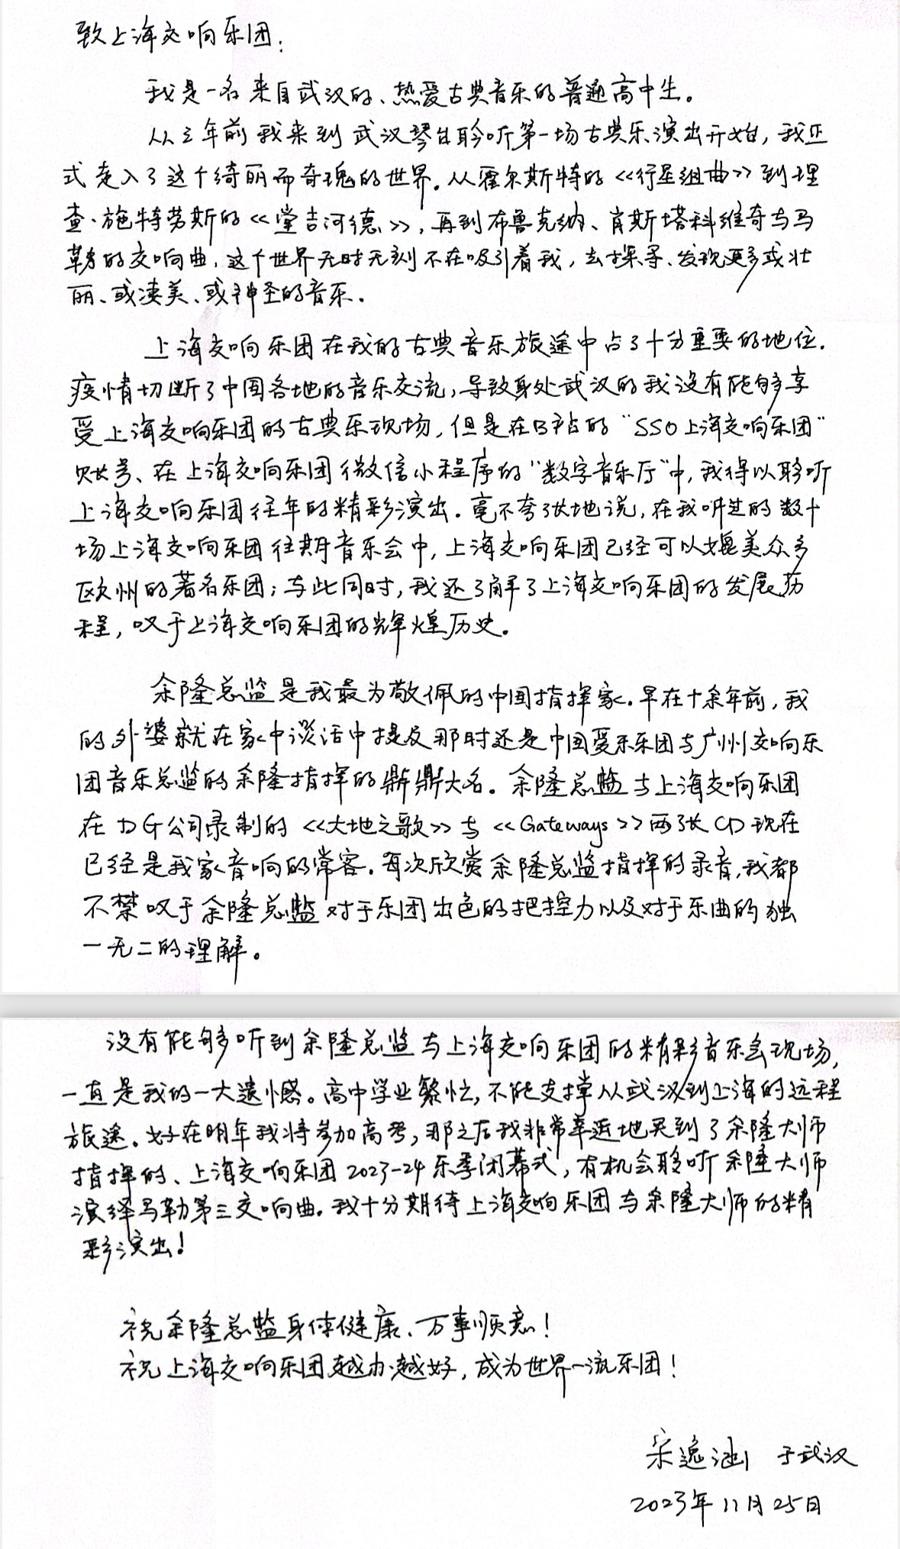 致上海交响乐团：
我是一名来自武汉的、热爱古典音乐的普通高中生。
从三年前我来到武汉琴台聆听第一场古典乐演出开始，我正
式走入了这个绮丽而奇瑰的世界。从霍尔斯特的《行星组曲》到理
查·施特劳斯的《堂吉诃德》，再到布鲁克纳、肖斯塔科维奇与马
勒的交响曲，这个世界无时无刻不在吸引着我，去探寻、发现更多或壮
丽、或凄美、或神圣的音乐。
上海交响乐团在我的古典音乐旅途中占了十分重要的地位。
疫情切断了中国各地的音乐交流，导致身处武汉的我没有能够享
受上海交响乐团的古典乐现场，但是在B站的“SSO上海交响乐团”
账号、在上海交响乐团微信小程序的“数字音乐厅”中，我得以聆听
上海交响乐团往年的精彩演出。毫不夸张地说，在我听过的数十
场上海交响乐团往期音乐会中，上海交响乐团已经可以媲美众多
欧州的著名乐团；与此同时，我还了解了上海交响乐团的发展历
程，叹于上海交响乐团的辉煌历史。
余隆总监是我最为敬佩的中国指挥家。早在十余年前，我
的外婆就在家中谈话中提及那时还是中国爱乐乐团与广州交响乐
团音乐总监的余隆指挥的鼎鼎大名。余隆总监与上海交响乐团
在DG公司录制的《大地之歌》与《Gateways》两张CD现在
已经是我家音响的常客。每次欣赏余隆总监指挥的录音，我都
不禁叹于余隆总监对于乐团出色的把控力以及对于乐曲的独
一无二的理解。
没有能够听到余隆总监与上海交响乐团的精彩音乐会现场，
一直是我的一大遗憾。高中学业繁忙，不能支撑从武汉到上海的远程
旅途。好在明年我将参加高考，那之后我非常幸运地买到了余隆大师
指挥的、上海交响乐团2023-24乐季闭幕式，有机会聆听余隆大师
演绎马勒第三交响曲。我十分期待上海交响乐团与余隆大师的精
彩演出！
祝余隆总监身体健康、万事顺意！
祝上海交响乐团越办越好，成为世界一流乐团！
宋逸涵 于武汉
2023年11月25日